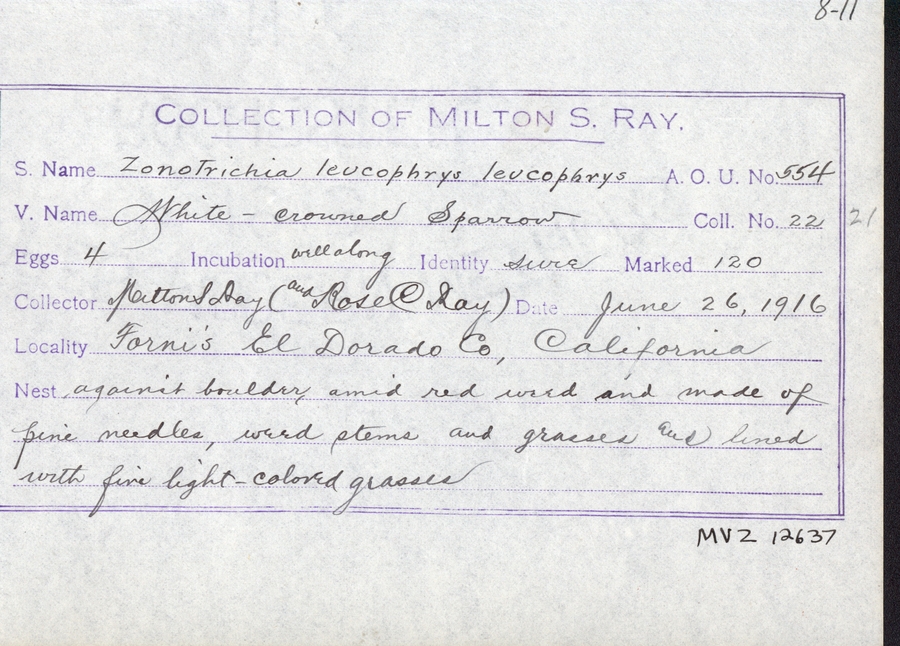 8-11
COLLECTION OF MILTON S. RAY.
S. Name Zonotrichia leucophrys leucophrys A. O. U. No. 554
V. Name White-crowned Sparrow Coll. No. 22 21
Eggs 4 Incubation well along Identity sure Marked 120
Collector Milton S Ray (and Rose C Ray) Date June 26, 1916
Locality Forni's El Dorado Co, California
Nest against boulder, amid red weed and made of
pine needles, weed stems and grasses and lined
with fine light-colored grasses
MVZ 12637